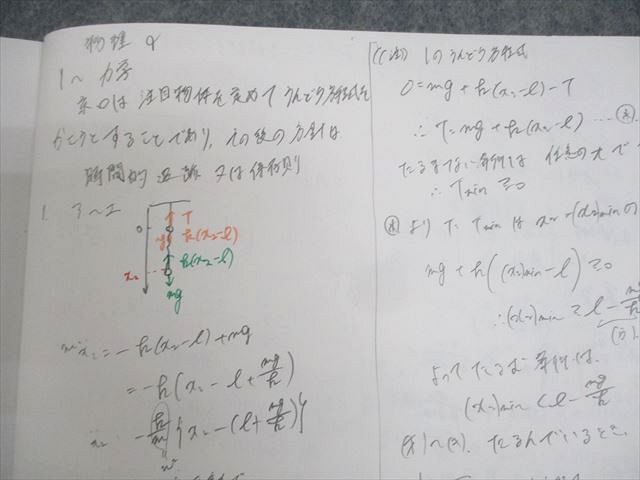 物理 Q
1〜 力学
京〇は 注目物体を定めて うんどう方程式を
かこうとすることであり、その後の方針は
時間的追跡 又は保存則
1. ア〜エ
T
0
mg
k(x₂-l)
k(x₂-l)
x₂
mg
mẍ₂=-k(x₂-l)+mg
=-k(x₂-l+mg/k)
ẍ₂=-k/m{x₂-(l+mg/k)}
ω²
1のうんどう方程式
0=mg+k(x₂-l)-T
∴T=mg+k(x₂-l)
たるまない条件は 任意のtで
∴Tmin≧0
より T=Tminは x₂=(x₂)minの
mg+k((x₂)min-l)≧0
∴(x₂)min≧l-mg/k
よって たるむ 条件は、
(x₂)min<l-mg/k
たるんでいるとき、